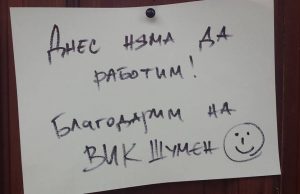 Днес няма да
работим!
Благодарим на
ВИК Шумен